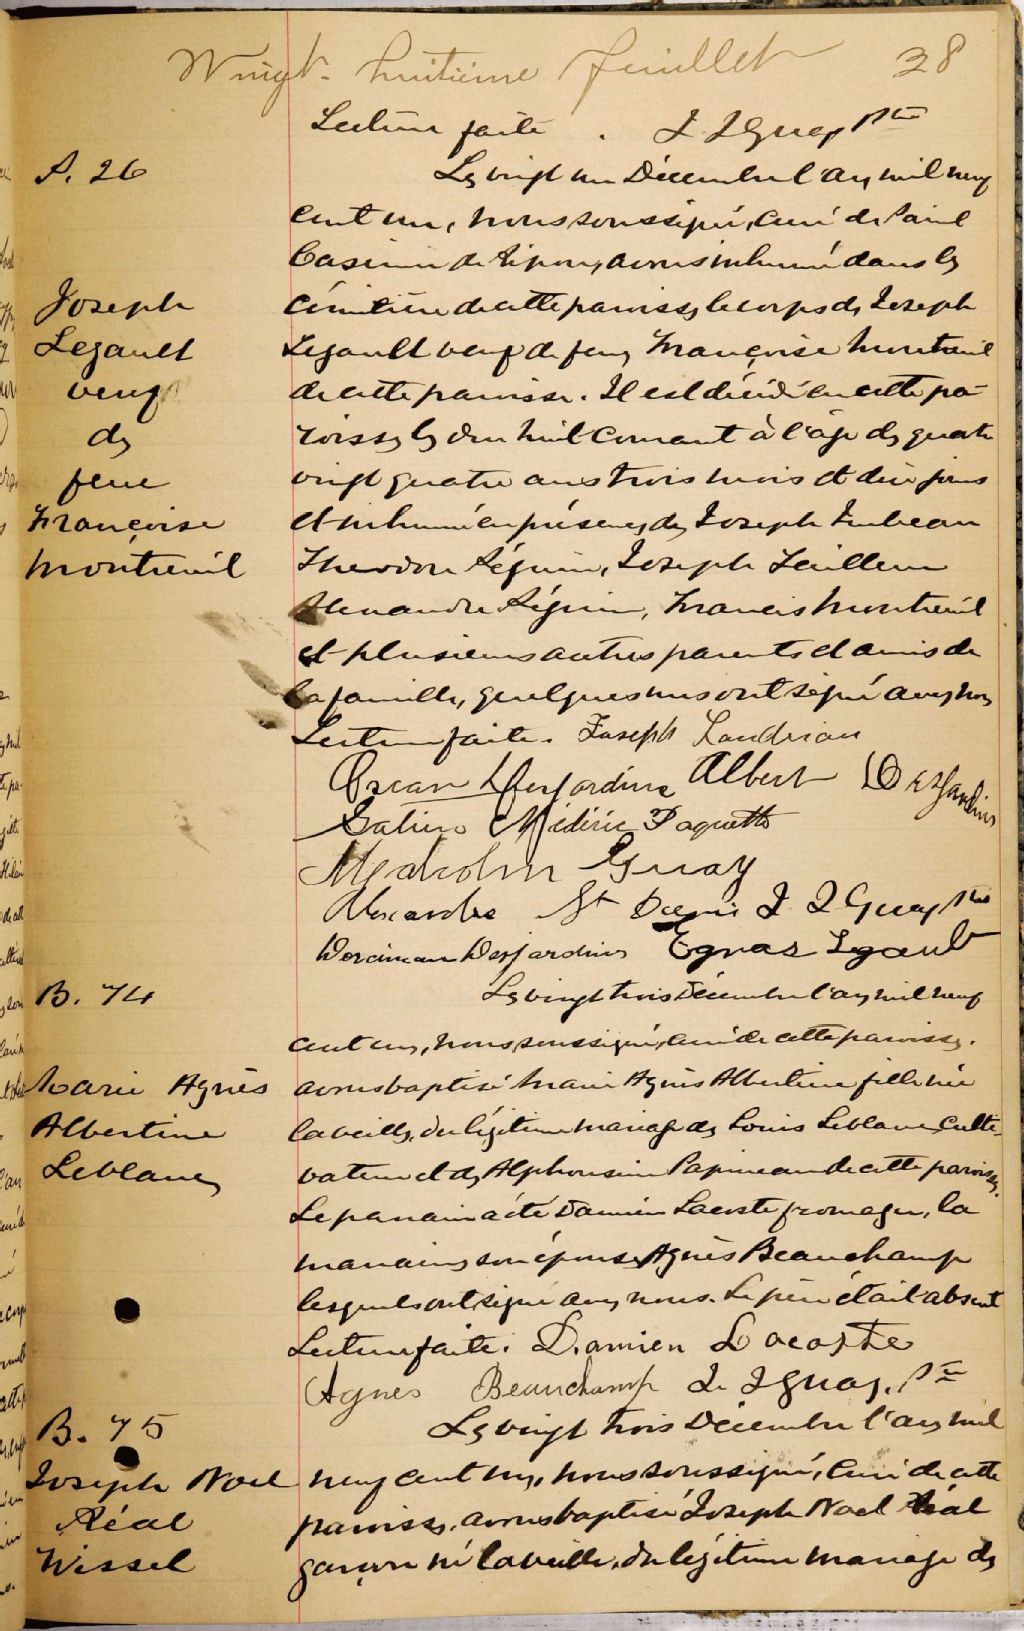 Vingt-huitième feuillet 28
Lecture faite. J J Guay Ptre
S. 26
Le vingt un Décembre l'an mil neuf
cent un, nous soussigné, curé de Saint
Casimir de Ripon, avons inhumé dans le
Joseph
cimetière de cette paroisse, le corps de Joseph
Legault
Legault veuf de feue Françoise Montreuil
veuf
de cette paroisse. Il est décédé en cette pa-
de
roisse le dix huit courant à l'âge de quatre
feue
vingt quatre ans trois mois et dix jours
Françoise
et inhumé en présence de Joseph Trubeau
Montreuil
Theodore Séguin, Joseph
Alexandre Séguin, Francis Montreuil
et plusieurs autres parents et amis de
la famille, quelques uns ont signé avec nous
Lecture faite. Joseph Landrian
Oscar Desjardins Albert Desjardins
Médéric Paquette
Malcolm Guay
Alexandre St Denis J. J Guay Ptre
Desjardins Egnas Legault
B. 74
Le vingt trois Décembre l'an mil neuf
cent un, nous soussigné, curé de cette paroisse.
Marie Agnès
avons baptisé Marie Agnès Albertine fille née
Albertine
la veille, du légitime mariage de Louis Leblanc, culti-
Leblanc
vateur et de Alphonsine Papineau de cette paroisse.
Le parrain a été Damien Lacoste fromager, la
marraine son épouse Agnès Beauchamp
lesquels ont signé avec nous. Le père était absent
Lecture faite. Damien Lacoste
Agnes Beauchamp J. J Guay. Ptre
B. 75
Le vingt trois Décembre l'an mil
Joseph Noel
neuf cent un, nous soussigné, curé de cette
Réal
paroisse, avons baptisé Joseph Noel Réal
Wissel
garçon né la veille, du légitime mariage de